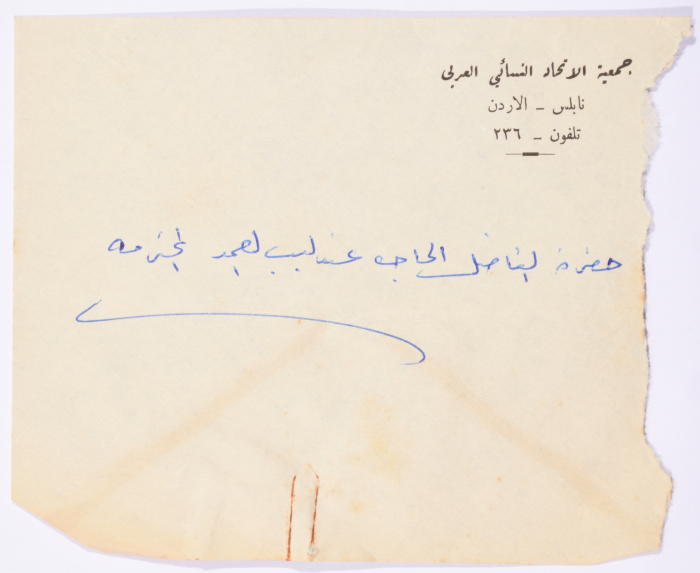 جمعية الاتحاد النسائي العربي
نابلس - الاردن
تلفون - ٢٣٦
حضرة الفاضله الحاجه عندليب العمد المحترمه